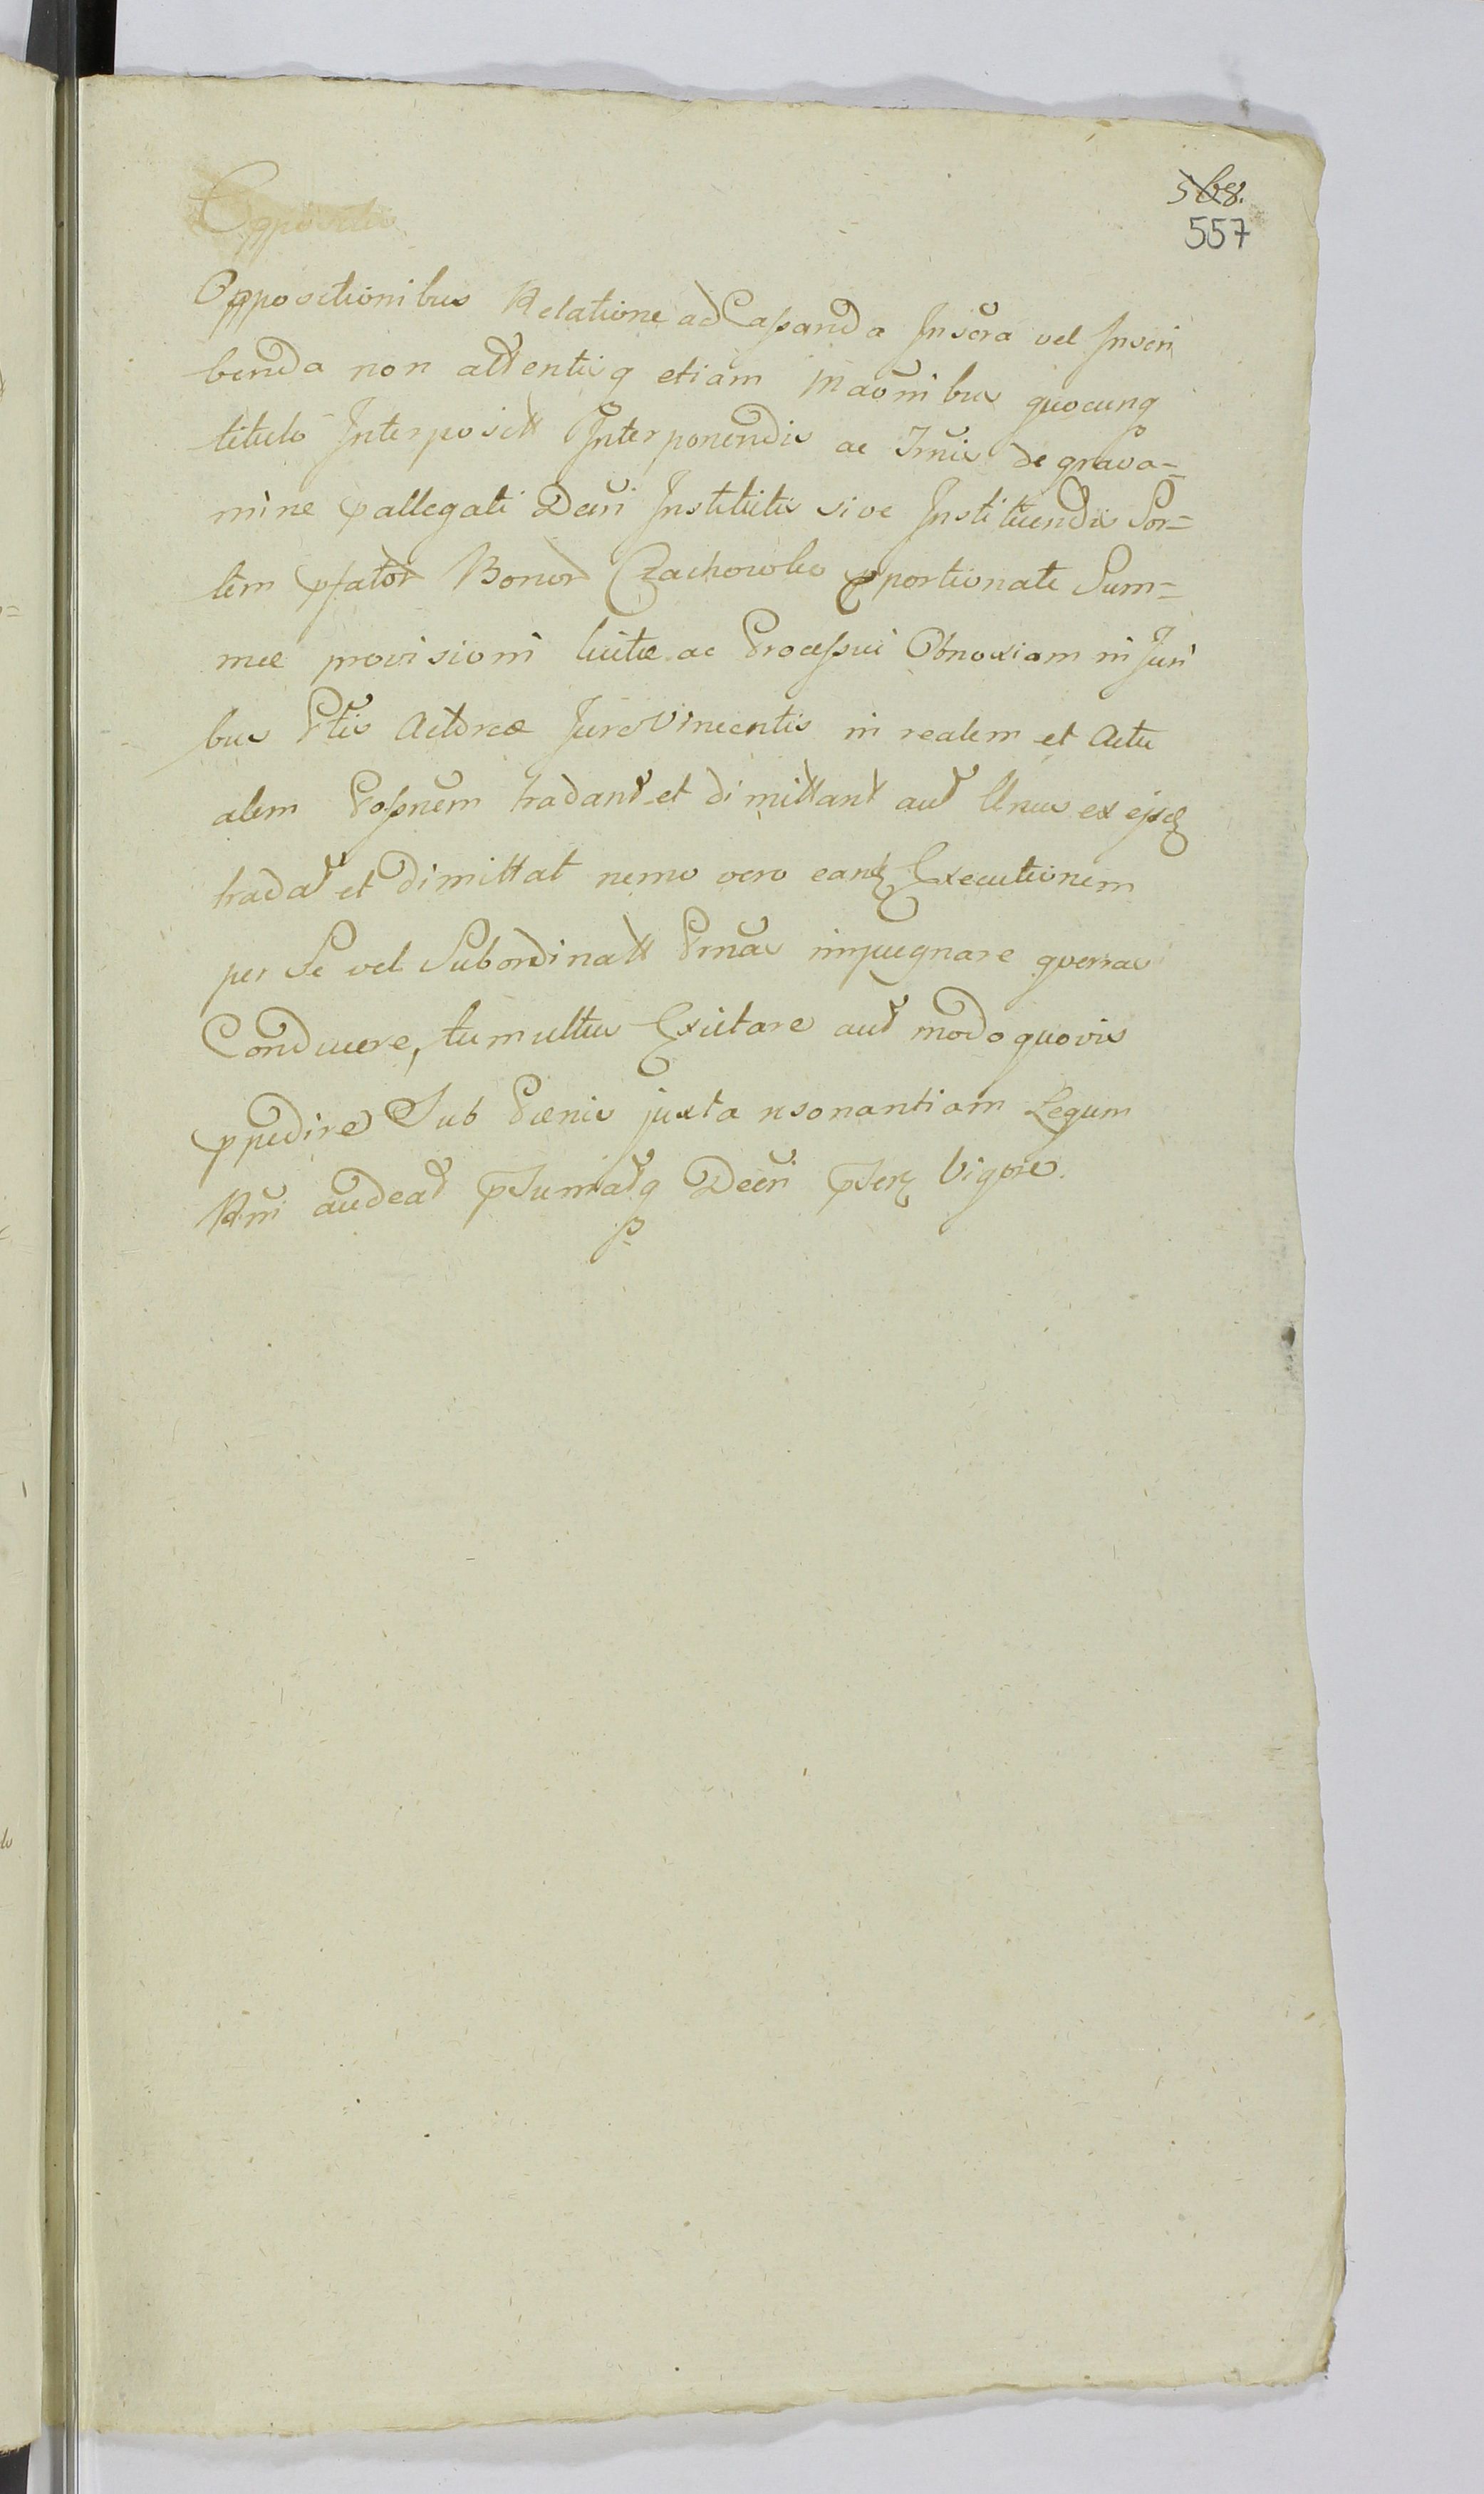 568.
557
Oppositionibus Relatione ad Caßanda Inscra vel Inscri
benda non attentis q etiam Maonibus quocunq
titulo Interposit Interponendis ac Irnis de grava=
mine pallegati Decri Institutis sive Instituendis Sor=
tem pfator Bonor Czachowlco pportionate Sum=
mæ provisioni licitæ ac Proceßui Obnoxiam in Juri
bus Ptis Actoreæ Jure Vincentis in realem et Actu
alem Poßnem tradant et dimittant aut Unus ex ejsq
tradat et dimittat nemo vero eandz Executionem
per Se vel Subordinatt Prnas impugnare guerras
Conducere, tumultus Excitare aut modo quovis
ppedire Sub Pænis juxta rsonantiam Legum
Rni audeat psumatq Decri pserz Vigore.